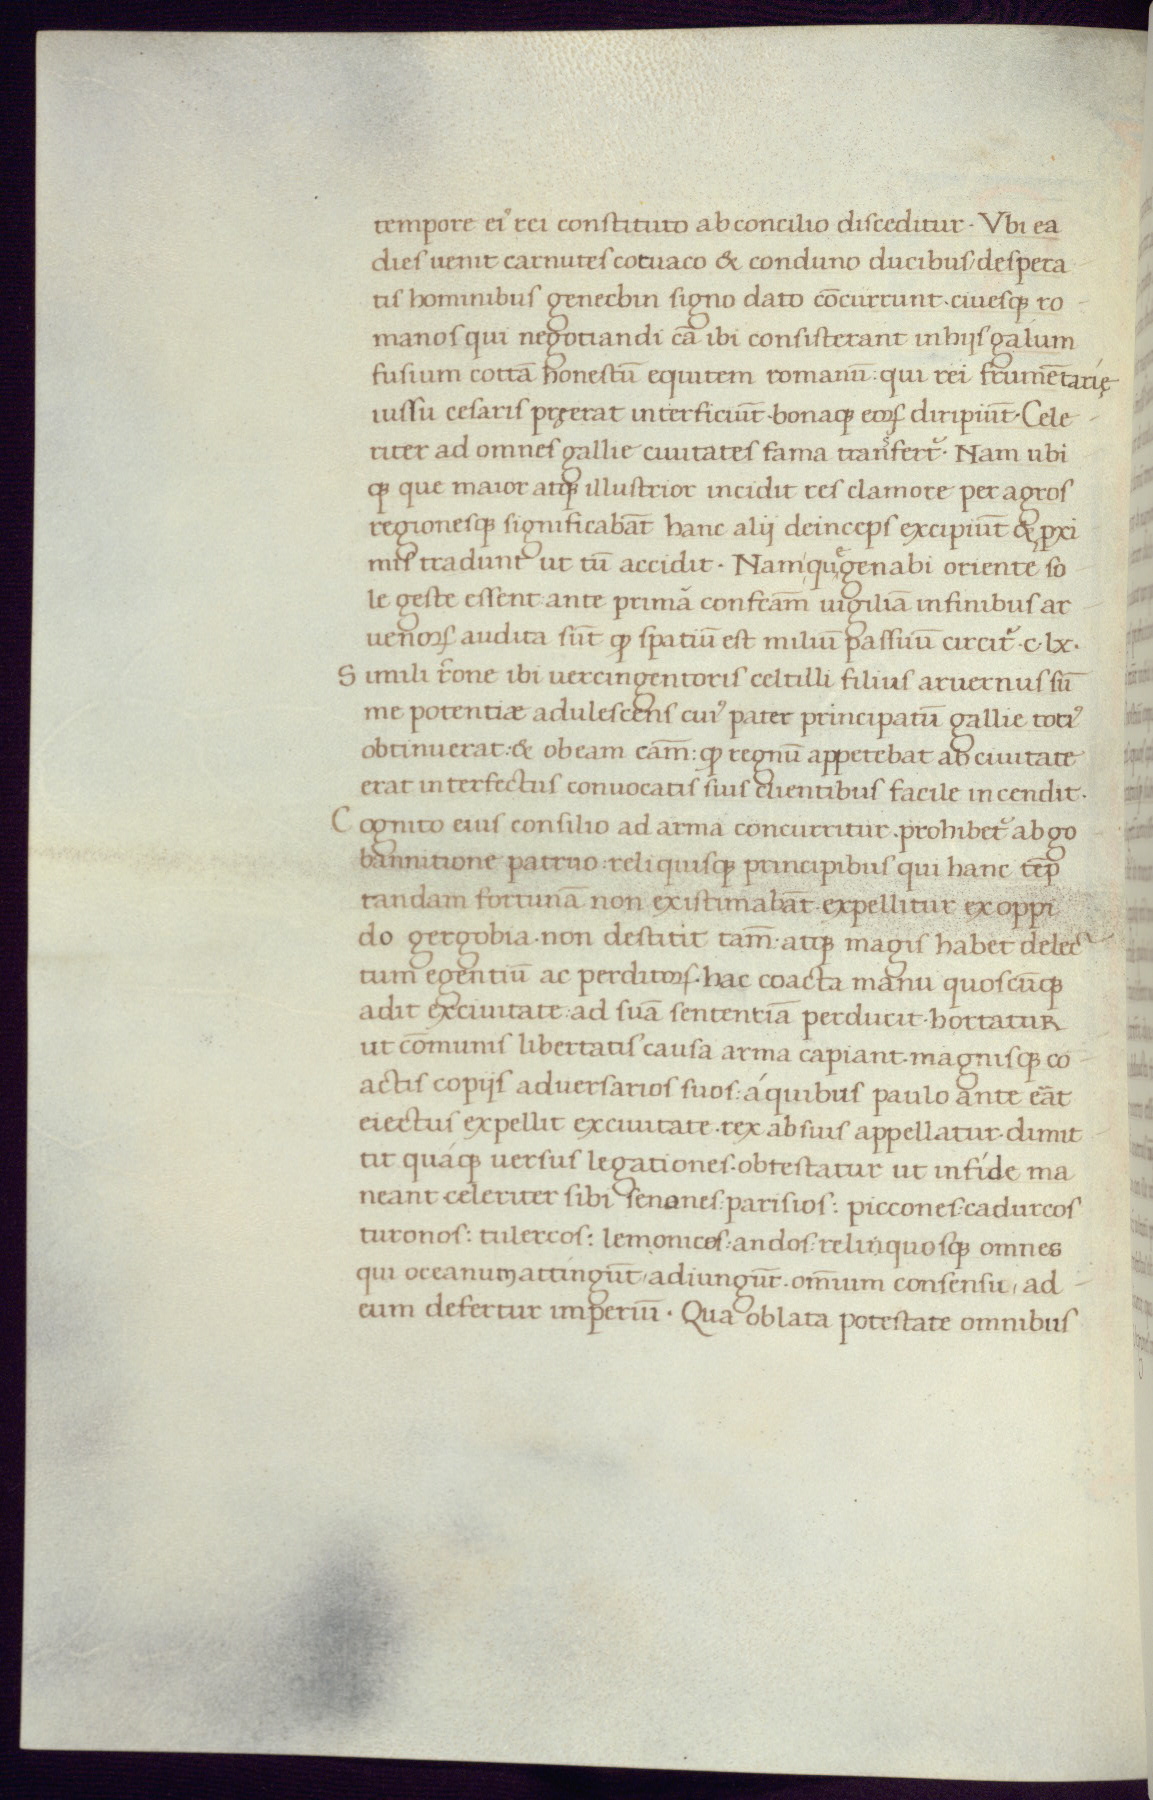 tempore ei᾽ rei constituto ab concilio disceditur · Vbi ea
dies uenit carnutes cotuaco & conduno ducibus / despera
tis hominibus genecbin signo dato co̅currunt · ciuesqꝫ ro
manos qui negotiandi ca̅ ibi consisterant in hijs galum
fusium cotta̅ honestu̅ equitem romanu̅ : qui rei frume̅tarię
iussu cesaris pręerat interficiu̅t · bonaqꝫ eoꝝ diripiu̅t · Cele
riter ad omnes gallie ciuitates fama transfert᷑ · Nam ubi
qꝫ que maior atqꝫ illustrior incidit res clamore per agros
regionesqꝫ significaba̅t hanc alij deinceps excipiu̅t & ꝓxi
mis tradunt ut tu̅ accidit · Nam quę genabi oriente so
le geste essent ante prima̅ confcam̅ uigilia̅ in finibus ar
uenoꝝ audita su̅t qꝫ spatiu̅ est miliu̅ passuu̅ circit᷑ · c · lx ·
Simili r̅one ibi uercingentoris celtilli filius aruernus su̅
me potentiæ adulescens cui᾽ pater principatu̅ gallie toti᾽
obtinuerat : & ob eam cam̅ : qꝫ regnu̅ appetebat ab ciuitate
erat interfectus conuocatis suis clientibus facile incendit ·
Cognito eius consilio ad arma concurritur · prohibet᷑ ab go
bannitione patruo : reliquisqꝫ principibus qui hanc te̅p
tandam fortuna̅ non existimaba̅t · expellitur ex oppi
do gergobia · non destitit tam̅ · atqꝫ magis habet delec
tum egentiu̅ ac perditoꝝ · hac coacta manu quoscu̅qꝫ
adit ex ciuitate : ad sua̅ sententia̅ perducit · hortatur
ut co̅munis libertatis causa arma capiant · magnisqꝫ co
actis copijs aduersarios suos : á quibus paulo ante ea̅t
eiectus expellit ex ciuitate · rex ab suis appellatur · dimit
tit quáqꝫ uersus legationes · obtestatur ut in fíde ma
neant · celeriter sibi senones : parisios : piccones : cadurcos
turonos : tulercos : lemonices : andos : relinquosqꝫ omnes
qui oceanum attingu̅t / adiungu̅t · om̅ium consensu / ad
eum defertur imperiu̅ · Qua oblata potestate omnibus